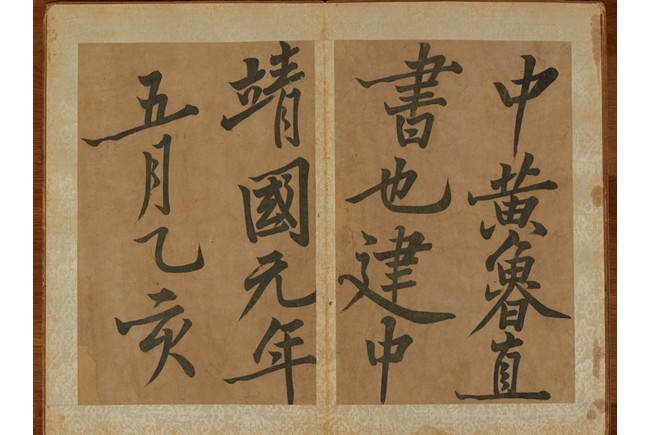 中黃魯直
書也建中
靖國元年
五月乙亥